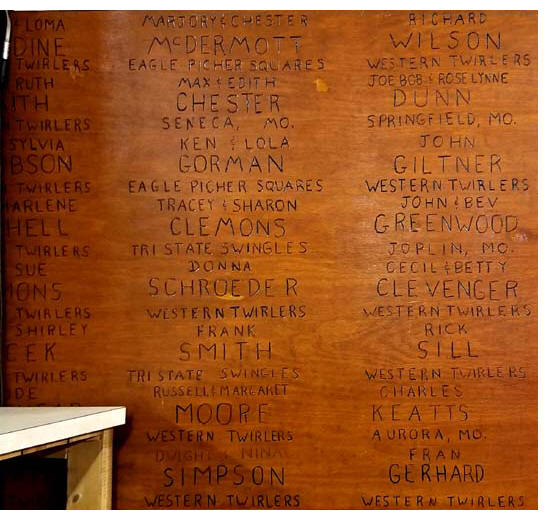 & LOMA
DINE
TWIRLERS
RUTH
ITH
TWIRLERS
SYLVIA
BSON
TWIRLERS
ARLENE
HELL
TWIRLERS
SUE
MONS
TWIRLERS
SHIRLEY
CEK
TWIRLERS
DE
MARJORY & CHESTER
McDERMOTT
EAGLE PICHER SQUARES
MAX & EDITH
CHESTER
SENECA, MO.
KEN & LOLA
GORMAN
EAGLE PICHER SQUARES
TRACEY & SHARON
CLEMONS
TRI STATE SWINGLES
DONNA
SCHROEDER
WESTERN TWIRLERS
FRANK
SMITH
TRI STATE SWINGLES
RUSSELL & MARGARET
MOORE
WESTERN TWIRLERS
DWIGHT & NINA
SIMPSON
WESTERN TWIRLERS
RICHARD
WILSON
WESTERN TWIRLERS
JOE BOB & ROSELYNNE
DUNN
SPRINGFIELD, MO.
JOHN
GILTNER
WESTERN TWIRLERS
JOHN & BEV
GREENWOOD
JOPLIN, MO.
CECIL & BETTY
CLEVENGER
WESTERN TWIRLERS
RICK
SILL
WESTERN TWIRLERS
CHARLES
KEATTS
AURORA, MO.
FRAN
GERHARD
WESTERN TWIRLERS